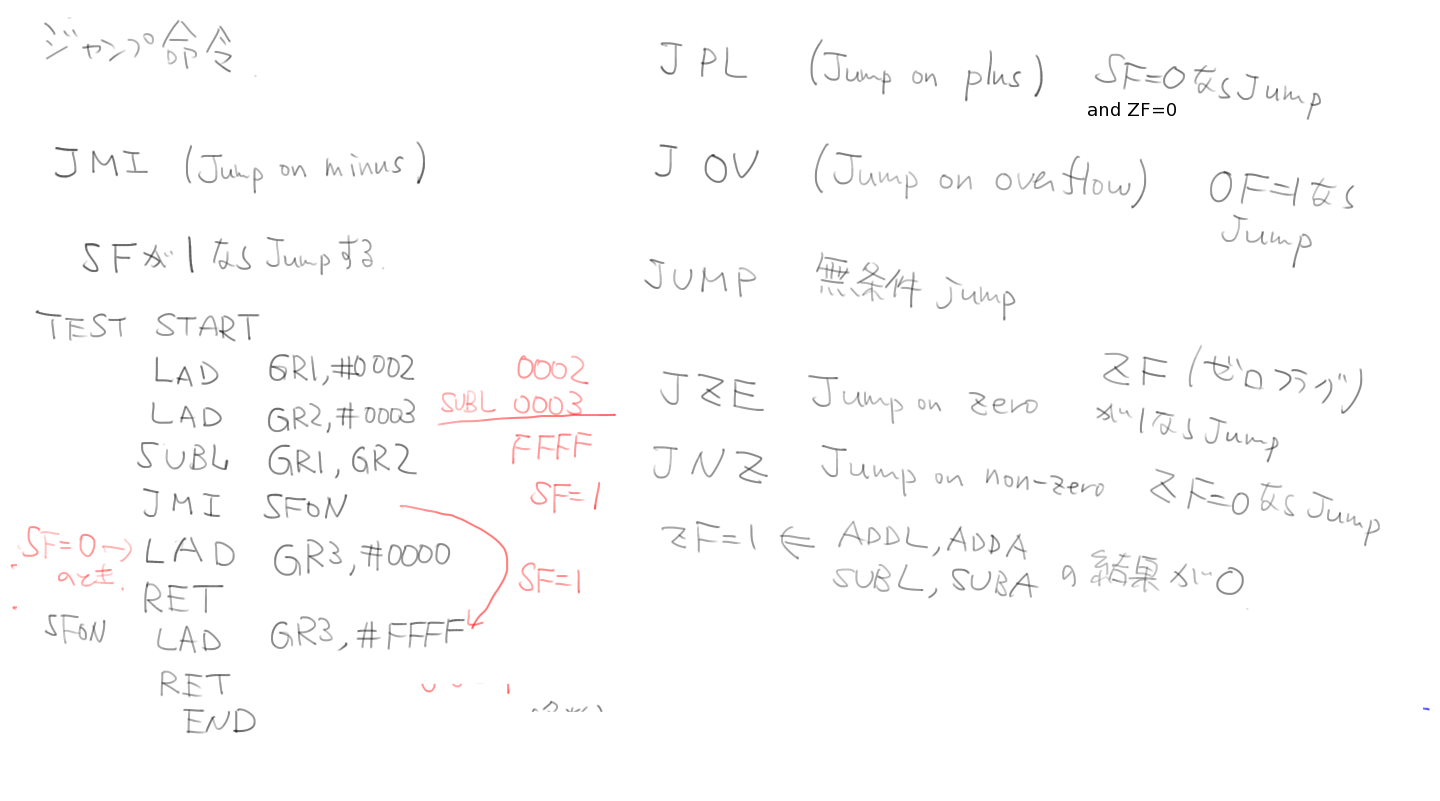 ジャンプ命令
JMI (Jump on minus)
SFが1ならJumpする.
TEST START
LAD GR1,#0002
LAD GR2,#0003
SUBL GR1,GR2
JMI SFON
SF=0→ LAD GR3,#0000
のとき.
RET
SFON LAD GR3,#FFFF
RET
END
0002
SUBL 0003
FFFF
SF=1
SF=1
JPL (Jump on plus) SF=0ならJump
and ZF=0
JOV (Jump on overflow) OF=1なら
Jump
JUMP 無条件jump
JZE Jump on zero ZF(ゼロフラグ)
が1ならJump
JNZ Jump on non-zero ZF=0ならJump
ZF=1 ← ADDL,ADDA
SUBL,SUBA の結果が0